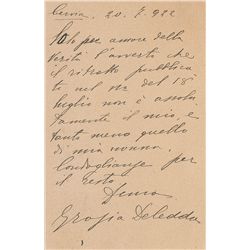 Cervia, 20. 7. 922
Solo per amore della
verità l'avverto che
il ritratto pubblica
to nel nr del 18
luglio non è assolu
tamente il mio, e
tanto meno quello
di mia nonna.
Condoglianze per
il resto
Grazia Deledda